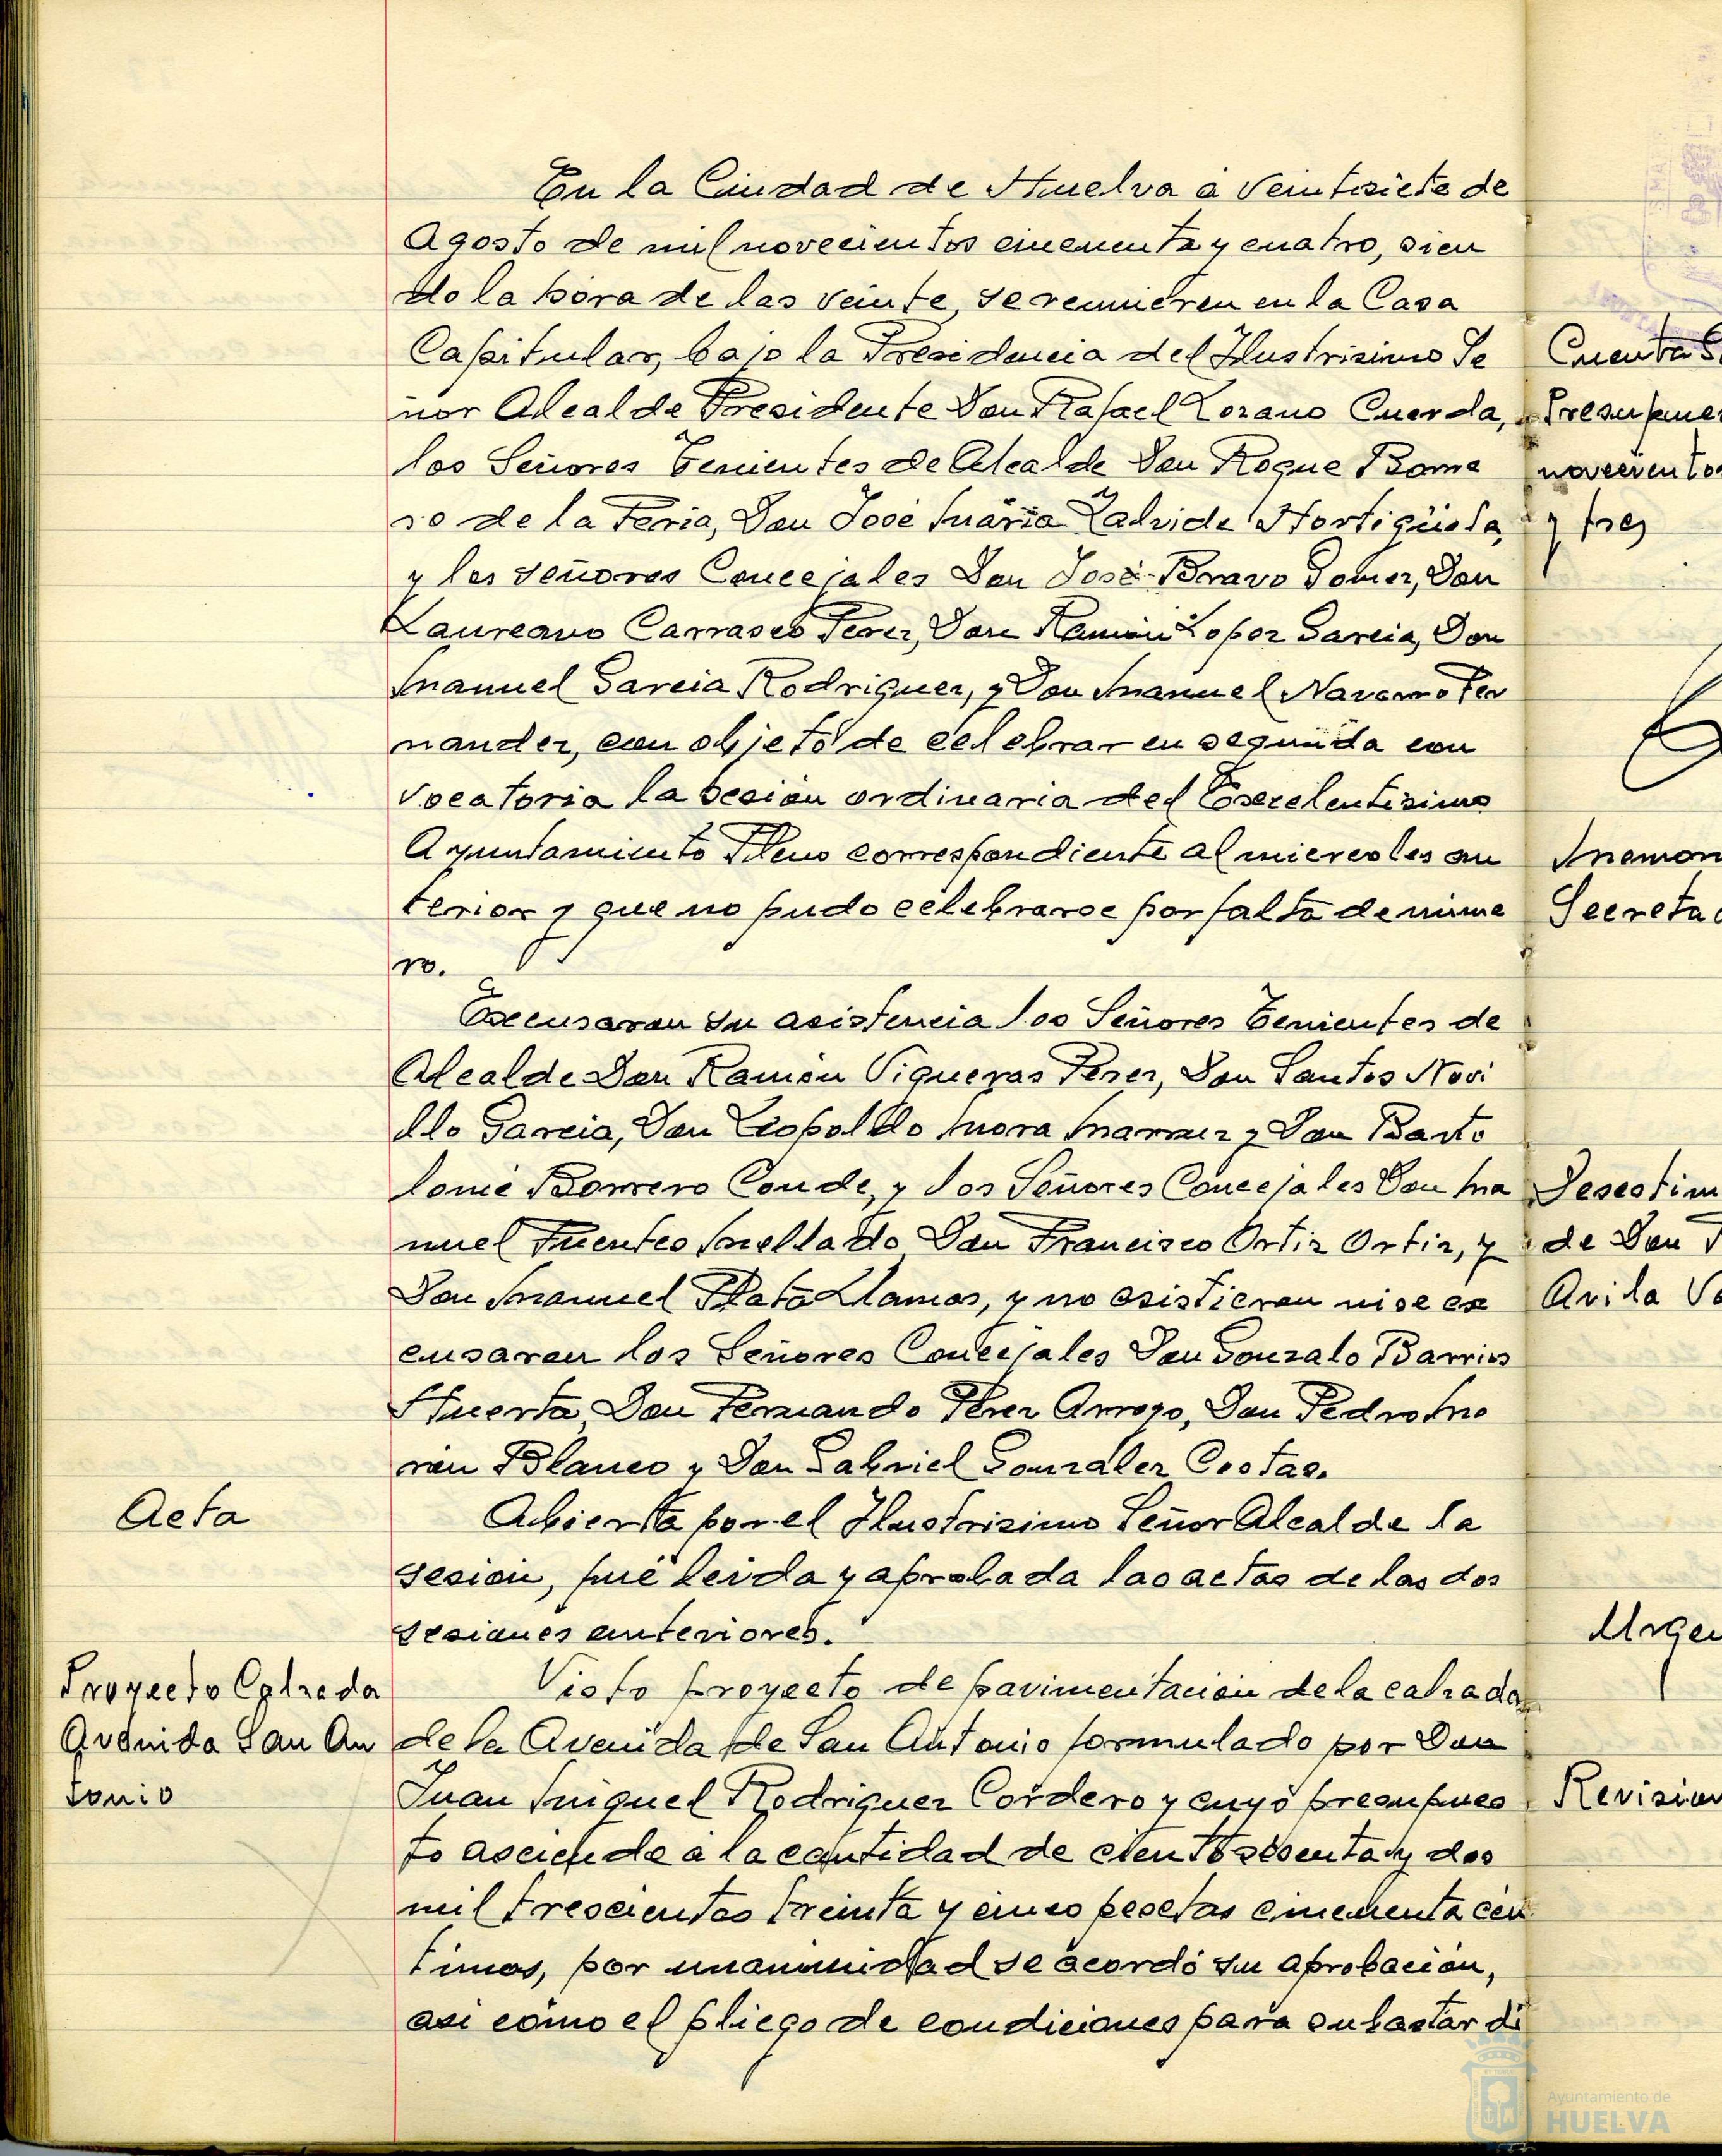 En la Ciudad de Huelva a veintisiete de
Agosto de mil novecientos cincuenta y cuatro, sien
do la hora de las veinte, se reunieron en la Casa
Capitular, bajo la Presidencia del Ilustrisimo Se
ñor Alcalde Presidente Don Rafael Lozano Cuerda,
los Señores Tenientes de Alcalde Don Roque Rome
ro de la Feria, Don José María Zalvide Hortigüela,
y los señores Concejales Don José Bravo Gomez, Don
Laureano Carrasco Perez, Don Ramón Lopez Garcia, Don
Manuel Garcia Rodriguez, y Don Manuel Navarro Fer
nandez, con objeto de celebrar en segunda con
vocatoria la sesión ordinaria del Excelentisimo
Ayuntamiento Pleno correspondiente al miercoles an
terior y que no pudo celebrarse por falta de nume
ro.
Excusaron su asistencia los Señores Tenientes de
Alcalde Don Ramón Vigueras Perez, Don Santos Novi
llo Garcia, Don Leopoldo Mora y Don Barto
lomé Borrero Conde, y los Señores Concejales Don Ma
nuel Fuentes Mellado Don Francisco Ortiz Ortiz, y
Don Manuel Plata Llamas, y no asistieron ni se ex
cusaron los Señores Concejales Don Gonzalo Barrios
Huerta, Don Fernando Perez Arroyo, Don Pedro Mo
ron Blanco y Don Gabriel Gonzalez Costas.
Acta
Abierta por el Ilustrisimo Señor Alcalde la
sesión, fué leida y aprobada las actas de las dos
sesiones anteriores.
Proyecto Calzada
Avenida San An
tonio
Visto proyecto de pavimentación de la calzada
de la Avenida de San Antonio formulado por Don
Juan Miguel Rodriguez Cordero y cuyo presupues
to asciende a la cantidad de ciento sesenta y dos
mil trescientas treinta y cinco pesetas cincuenta cén
timos, por unanimidad se acordó su aprobación,
asi como el pliego de condiciones para subastar di
Cuenta
Presupue
noveciento
y tres
Memor
Secreta
Desestim
de Don
Avila
Urgen
Revision
Ayuntamiento de
HUELVA